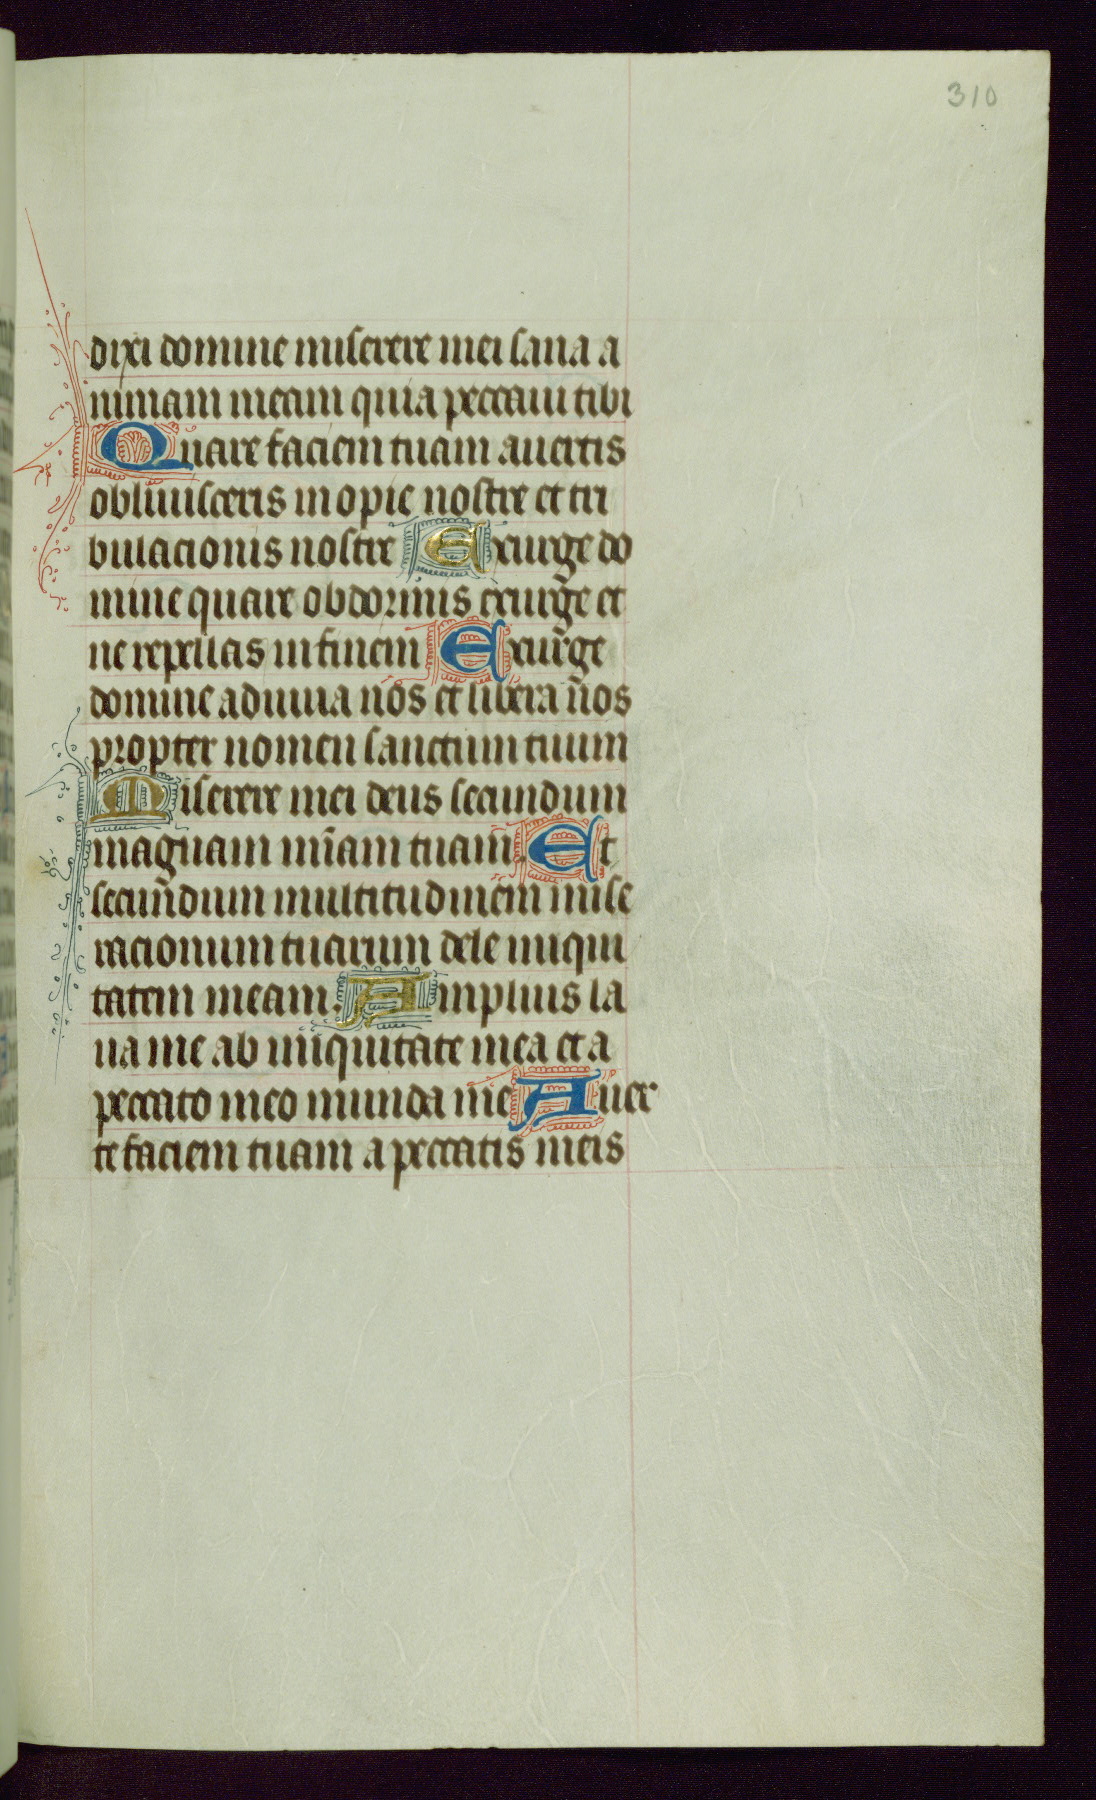 310
dixi domine miserere mei sana a
nimam meam quia peccaui tibi
Quare faciem tuam auertis
obliuisceris inopie nostre et tri
bulacionis nostre Exurge do
mine quare obdormis exurge et
ne repellas in finem Exurge
domine adiuua nos et libera nos
propter nomen sanctum tuum
Miserere mei deus secundum
magnam mīam tuam. Et
secundum multitudinem mise
racionum tuarum dele iniqui
tatem meam. Amplius la
ua me ab iniquitate mea et a
peccato meo munda me Auer
te faciem tuam a peccatis meis